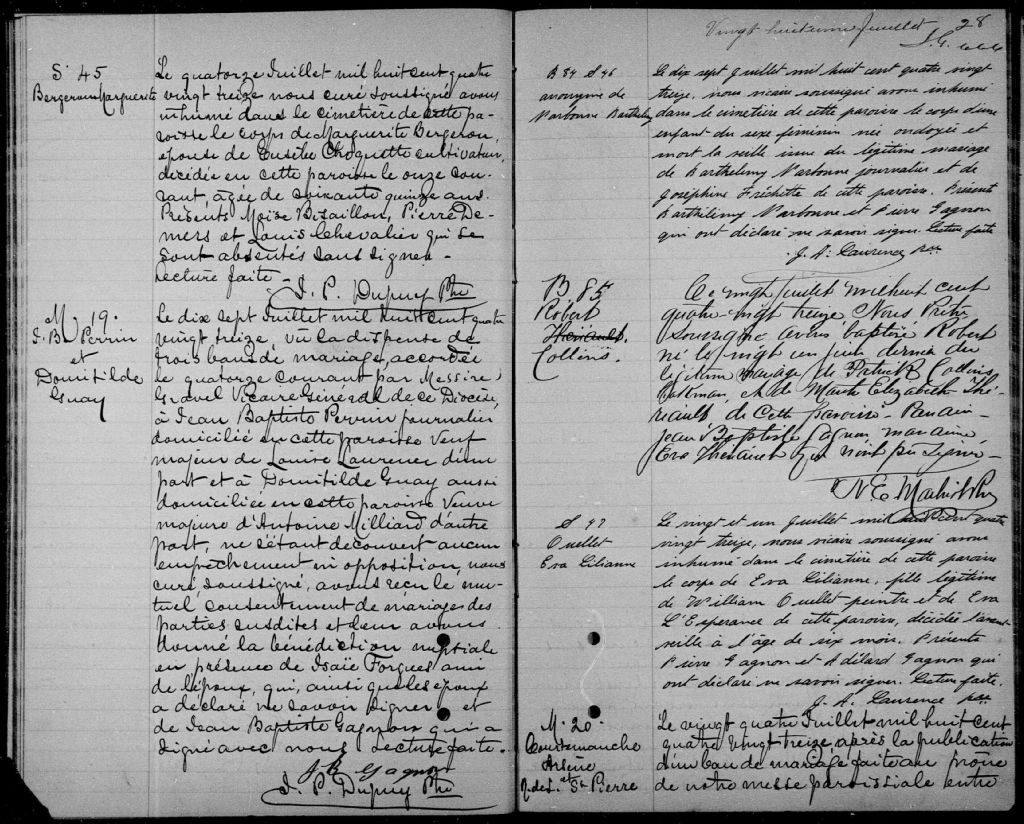 S 45
Bergeron Marguerite
Le quatorze Juillet mil huit cent quatre
vingt treize nous curé soussigné avons
inhumé dans le cimetière de cette pa-
roisse le corps de Marguerite Bergeron,
épouse de Eusèbe Choquette cultivateur,
décédée en cette paroisse le onze cou-
rant, agée de soixante quinze ans.
Présents Moïse Bisaillon, Pierre De-
mers et Louis Chevalier qui se
sont absentés sans signer -
Lecture faite -
J. P. Dupuy Ptre
M. 19.
J. B. Perrin
et
Domitilde
Guay
Le dix sept Juillet mil huit cent quatre
vingt treize, vu la dispense de
trois bans de mariage, accordée
le quatorze courant par Messire
Gravel Vicaire Général de ce Diocèse,
à Jean Baptiste Perrin journalier
domicilié en cette paroisse Veuf
majeur de Louise Laurence d'une
part et à Domitilde Guay aussi
domiciliée en cette paroisse Veuve
majeure d'Antoine Milliard d'autre
part, ne s'étant découvert aucun
empêchement ni opposition, nous
curé, soussigné, avons reçu le mu-
tuel consentement de mariage des
parties susdites et leur avons
donné la bénédiction nuptiale
en présence de Isaïe Forgues ami
de l'époux, qui, ainsi que les époux
a déclaré ne savoir signer et
de Jean Baptiste Gagnon qui a
signé avec nous Lecture faite -
J B Gagnon
J. P. Dupuy Ptre
Vingt huitième feuillet 28
B 84 S 46
anonyme de
Narbonne Barthelmy
Le dix sept Juillet mil huit cent quatre vingt
treize, nous vicaire soussigné avons inhumé
dans le cimetière de cette paroisse le corps d'une
enfant du sexe féminin née ondoyée et
mort la veille issue du légitime mariage
de Barthelmy Narbonne journalier et de
Joséphine Fréchette de cette paroisse. Présents
Barthélemy Narbonne et Pierre Gagnon
qui ont déclaré ne savoir signer. Lecture faite
J. A. Laurence ptre
B 85
Robert
Thériault
Collins.
Ce vingt juillet mil huit cent
quatre-vingt treize Nous Prêtre
soussigné avons baptisé Robert
né le vingt un juin dernier du
légitime mariage de Patrick Collins
et de Marie Elizabeth Thé-
reault de cette paroisse - Parrain -
Jean Baptiste Gagnon marraine,
Eva Thériault qui n'ont pu signer -
S 47
Ouellet
Eva Lilianne
Le vingt et un Juillet mil huit cent quatre
vingt treize, nous vicaire soussigné avons
inhumé dans le cimetière de cette paroisse
le corps de Eva Lilianne, fille légitime
de William Ouellet peintre et de Eva
L'Esperance de cette paroisse, décédée l'avant
veille à l'âge de six mois. Présents
Pierre Gagnon et Adélard Gagnon qui
ont déclaré ne savoir signer. Lecture faite.
J. A. Laurence ptre
M. 20.
Courtemanche
Arsène
et
St Pierre
Le vingt quatre Juillet mil huit cent
quatre vingt treize, après la publication
d'un ban de mariage faite au prône
de notre messe paroissiale entre